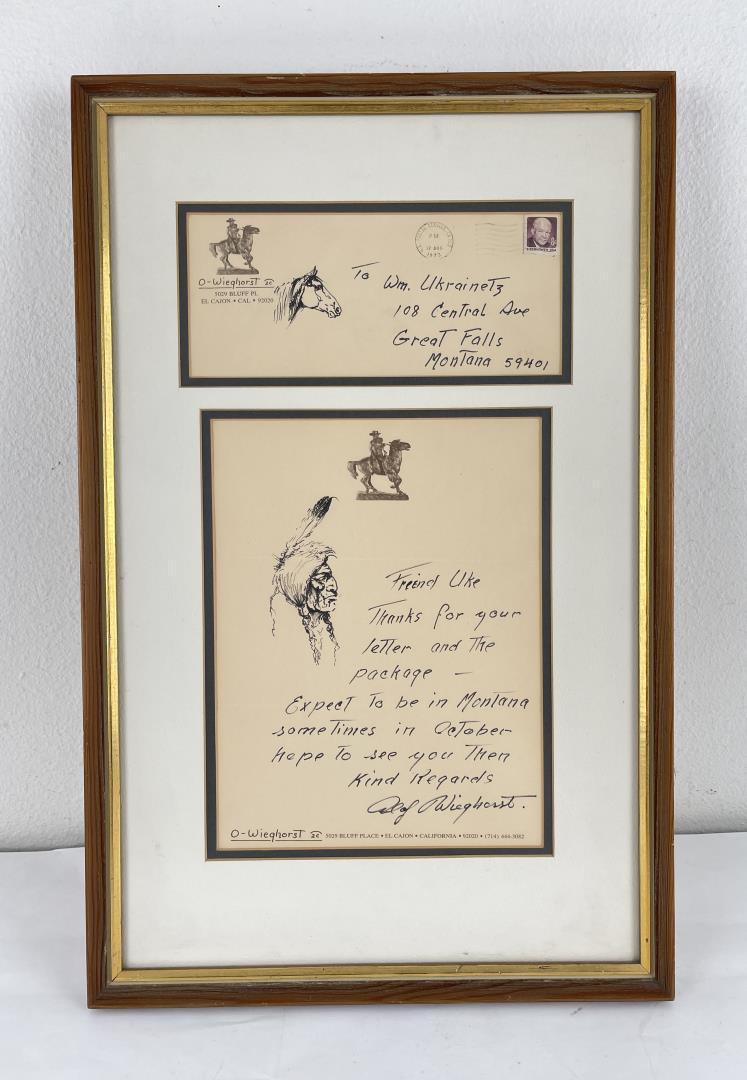 O-Wieghorst
5029 BLUFF PL
EL CAJON • CAL • 92020
PM
To Wm. Ukrainetz
108 Central Ave
Great Falls
Montana 59401
Freind Uke
Thanks for your
letter and the
package —
Expect To be in Montana
sometimes in October-
hope To see you Then
Kind Regards
Olaf Wieghorst.
O-Wieghorst 5029 BLUFF PLACE • EL CAJON • CALIFORNIA • 92020 • (714) 444-3082